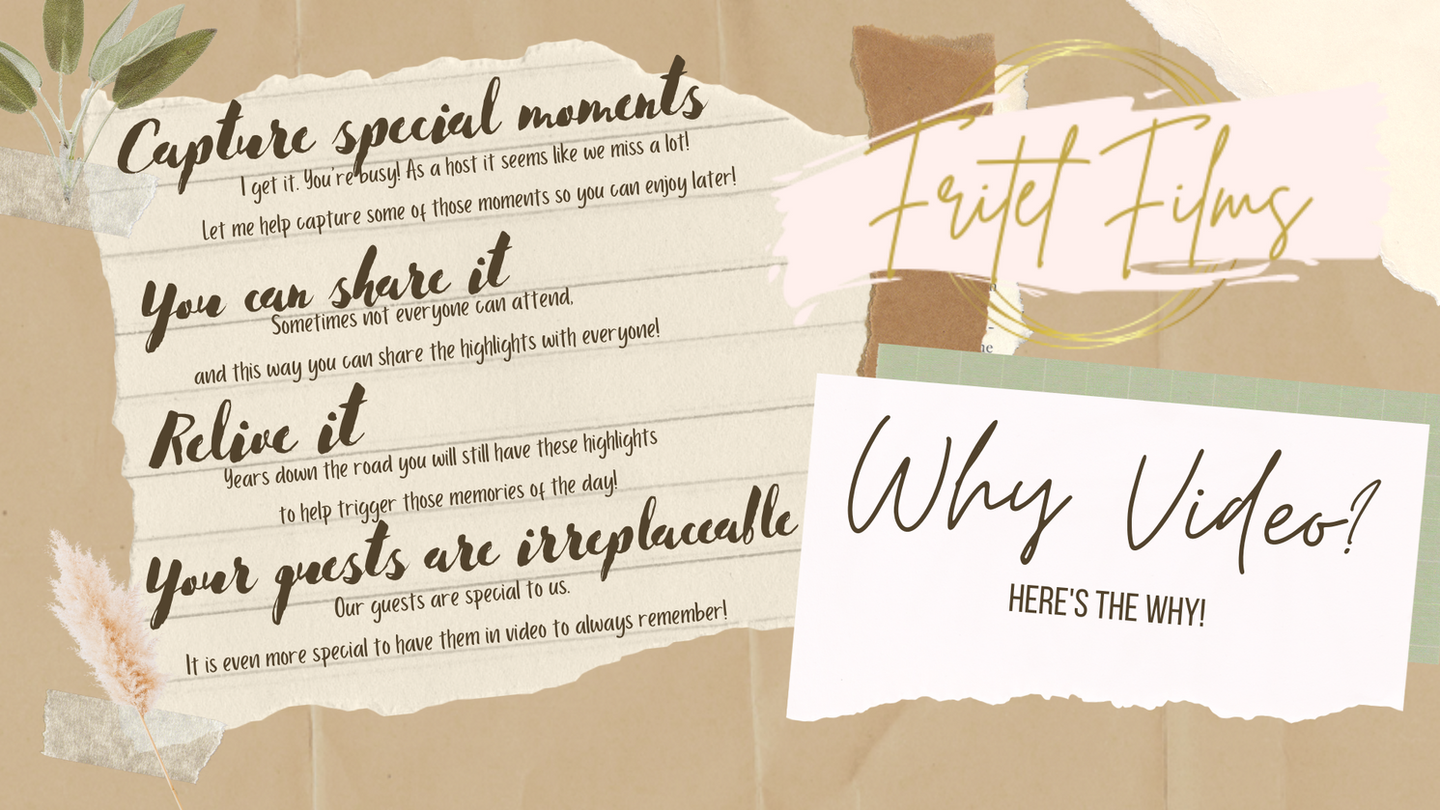 Capture special moments
I get it. You're busy! As a host it seems like we miss a lot!
Let me help capture some of those moments so you can enjoy later!
You can share it
Sometimes not everyone can attend,
and this way you can share the highlights with everyone!
Relive it
Years down the road you will still have these highlights
to help trigger those memories of the day!
Your guests are irreplaceable
Our guests are special to us.
It is even more special to have them in video to always remember!
Fritel Films
Why Video?
HERE'S THE WHY!